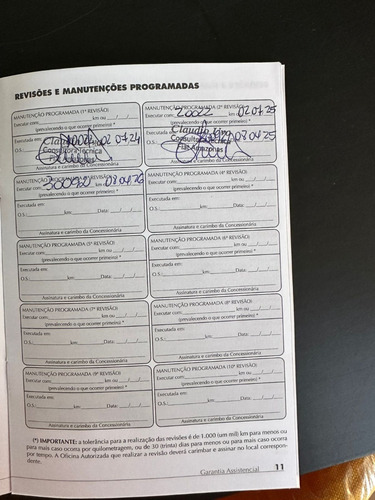 REVISÕES E MANUTENÇÕES PROGRAMADAS
MANUTENÇÃO PROGRAMADA (1ª REVISÃO):
Executar com: km ou / /
(prevalecendo o que ocorrer primeiro) *
Executada em:
Consultora Técnica
02 07 24
Assinatura e carimbo da Concessionária
MANUTENÇÃO PROGRAMADA (2ª REVISÃO):
Executar com: km ou 02 07 25
(prevalecendo o que ocorrer primeiro) *
Executada em:
Claudia
Consultora Técnica
08 04 25
Assinatura e carimbo da Concessionária
MANUTENÇÃO PROGRAMADA (3ª REVISÃO):
Executar com: km ou 08 04 26
(prevalecendo o que ocorrer primeiro) *
Executada em:
O.S.: km: Data: / /
Assinatura e carimbo da Concessionária
MANUTENÇÃO PROGRAMADA (4ª REVISÃO):
Executar com: km ou / /
(prevalecendo o que ocorrer primeiro) *
Executada em:
O.S.: km: Data: / /
Assinatura e carimbo da Concessionária
MANUTENÇÃO PROGRAMADA (5ª REVISÃO):
Executar com: km ou / /
(prevalecendo o que ocorrer primeiro) *
Executada em:
O.S.: km: Data: / /
Assinatura e carimbo da Concessionária
MANUTENÇÃO PROGRAMADA (6ª REVISÃO):
Executar com: km ou / /
(prevalecendo o que ocorrer primeiro) *
Executada em:
O.S.: km: Data: / /
Assinatura e carimbo da Concessionária
MANUTENÇÃO PROGRAMADA (7ª REVISÃO):
Executar com: km ou / /
(prevalecendo o que ocorrer primeiro) *
Executada em:
O.S.: km: Data: / /
Assinatura e carimbo da Concessionária
MANUTENÇÃO PROGRAMADA (8ª REVISÃO):
Executar com: km ou / /
(prevalecendo o que ocorrer primeiro) *
Executada em:
O.S.: km: Data: / /
Assinatura e carimbo da Concessionária
MANUTENÇÃO PROGRAMADA (9ª REVISÃO):
Executar com: km ou / /
(prevalecendo o que ocorrer primeiro) *
Executada em:
O.S.: km: Data: / /
Assinatura e carimbo da Concessionária
MANUTENÇÃO PROGRAMADA (10ª REVISÃO):
Executar com: km ou / /
(prevalecendo o que ocorrer primeiro) *
Executada em:
O.S.: km: Data: / /
Assinatura e carimbo da Concessionária
(*) IMPORTANTE: a tolerância para a realização das revisões é de 1.000 (um mil) km para menos ou
para mais caso ocorra por quilometragem, ou de 30 (trinta) dias para menos ou para mais caso ocorra
por tempo. A Oficina Autorizada que realizar a revisão deverá carimbar e assinar no local correspon-
dente.
Garantia Assistencial 11